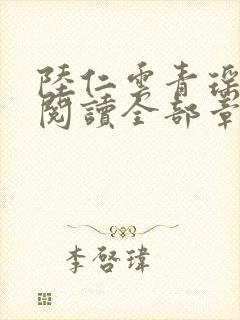 陸仁雲青瑶
閱讀全部章
李啓瑋